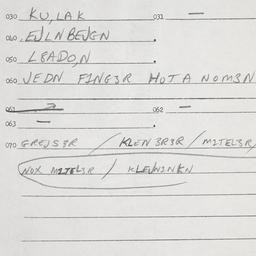 030 KU,LAK 031 —
040 .EJLNBEJGN .
050 L8ADO,N .
060 JEDN F1NG3R HOTA NOM3N
061 → 062 —
063 — .
070 GREJS3R / KLEN3R3R / M2TEL3R,
NOX M2TEL3R / KLEJN2NKN